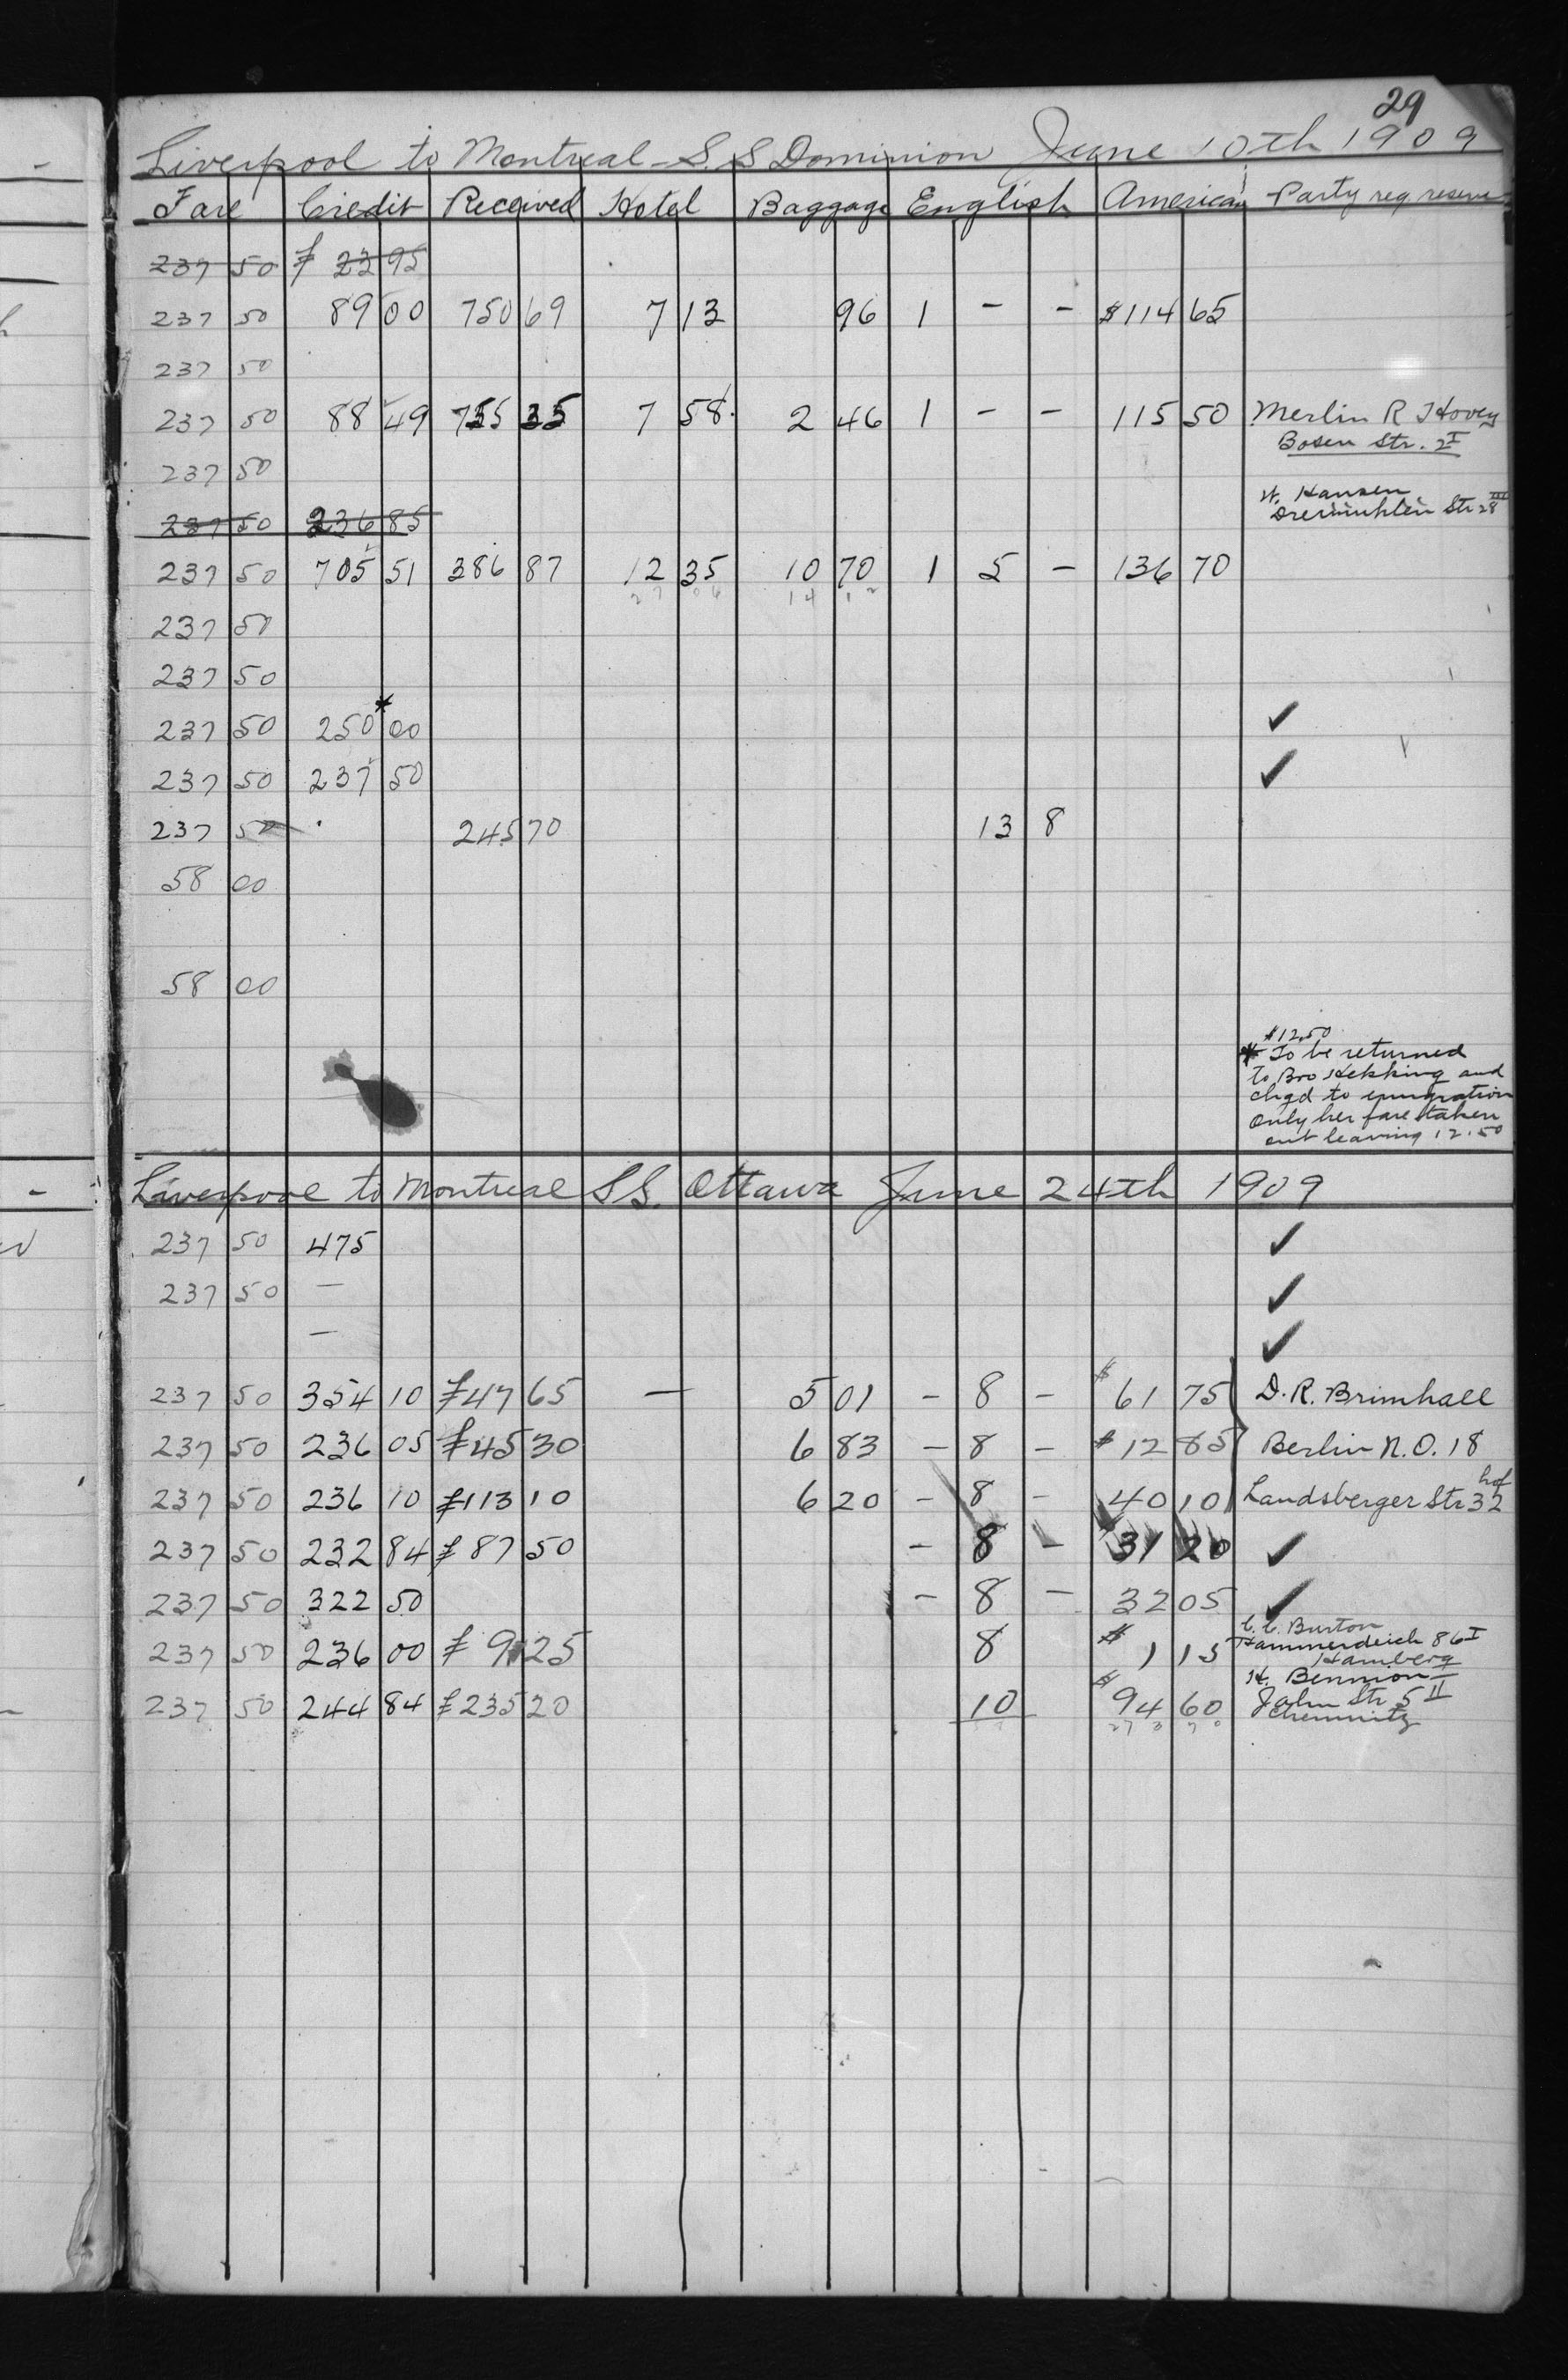 29
Liverpool to Montreal - S. S Dominion June 10th 1909
Fare Credit Received Hotel Baggage English American Party req reserve
237 50 23 95
237 50 89 00 750 69 7 13 96 1 - - $114 65
237 50
237 50 88 49 755 35 7 58 2 46 1 - - 115 50 Merlin R Hovey
Bosen Str. 2 I
237 50
H. Hansen
Str 28 III
237 50 236 85
237 50 705 51 386 87 12 35 10 70 1 5 - 136 70
27 06 14 12
237 50
237 50
237 50 250 00 * ✓
237 50 237 50 ✓
237 50 245 70 13 8
58 00
58 00
$12.50
* To be returned
to Bro Hekking and
chgd to emigration
Only her fare taken
out leaving 12.50
Liverpool to Montreal S S. Ottawa June 24th 1909
237 50 475 ✓
237 50 - ✓
- ✓
237 50 354 10 £47 65 - 5 01 - 8 - $61 75 D. R. Brimhall
237 50 236 05 £45 30 6 83 - 8 - $12 85 Berlin N.O. 18
237 50 236 10 £113 10 6 20 - 8 - 40 10 Landsberger Str 32 hof
237 50 232 84 £87 50 - 8 - 31 20 ✓
237 50 322 50 - 8 - 32 05 ✓
C. C. Burton
237 50 236 00 £9 25 8 $1 15 Hammerdeich 86 I
Hamberg
H. Bennion
237 50 244 84 £235 20 10 $94 60 Jahn Str 5 II
27 3 70 Chemnitz